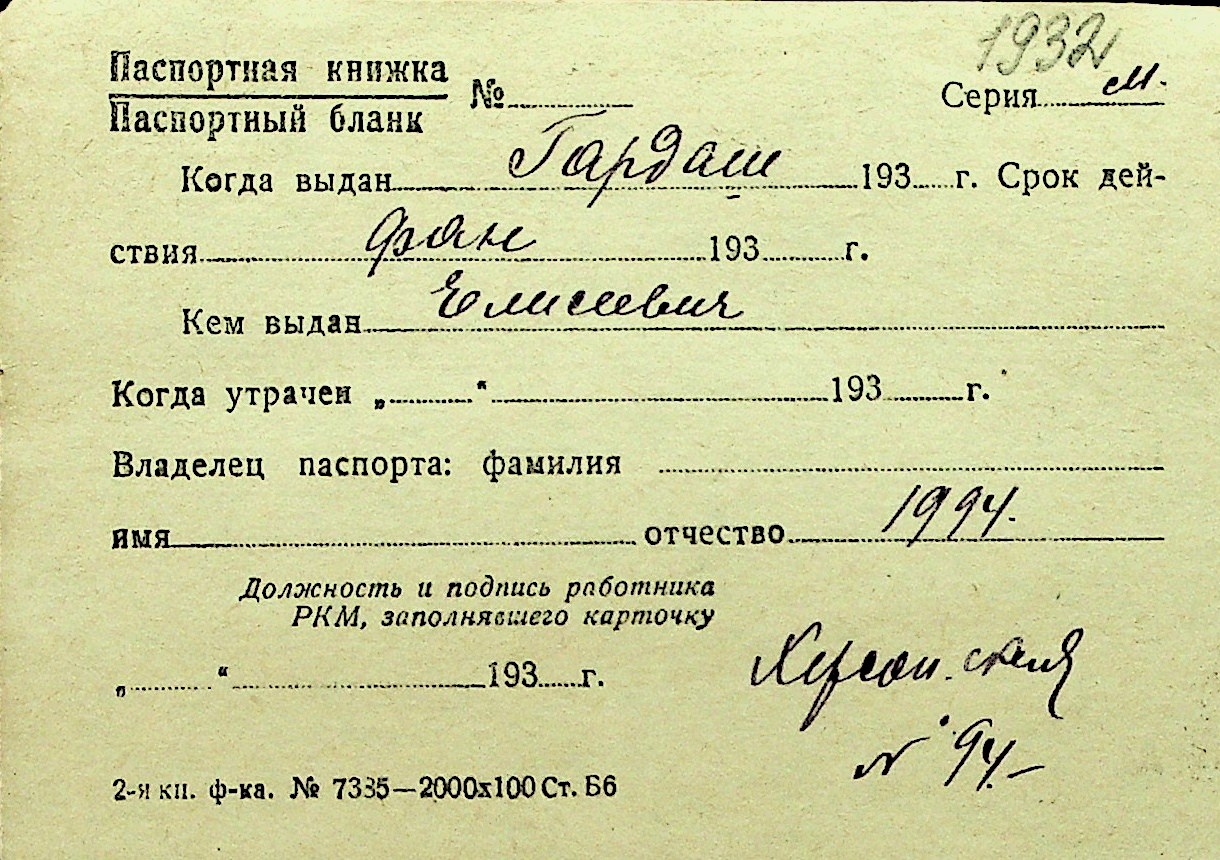 1932
Паспортная книжка
Паспортный бланк
№ Серия м.
Когда выдан Гардаш 193 г. Срок дей-
ствия фан 193 г.
Кем выдан Елисеевич
Когда утрачен „ “ 193 г.
Владелец паспорта: фамилия
имя отчество 1994.
Должность и подпись работника
РКМ, заполнявшего карточку
„ “ 193 г.
Херсон. ская
№ 94.–
2-я кн. ф-ка. № 7385—2000х100 Ст. Б6